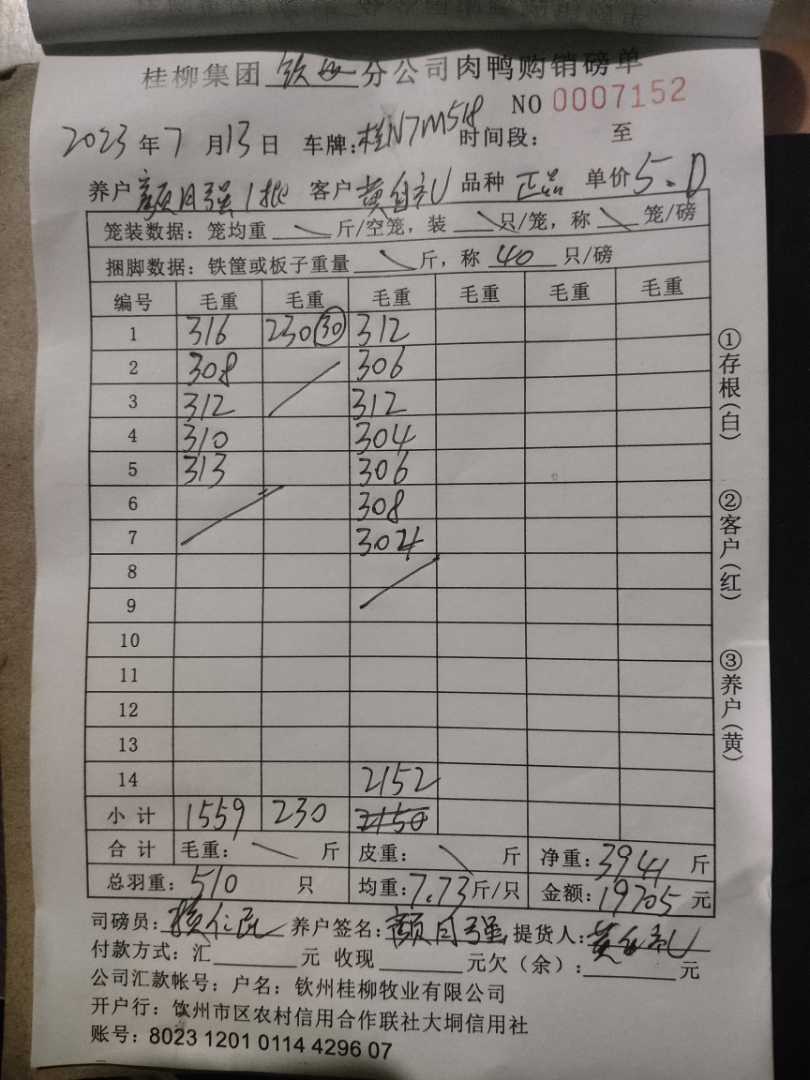 桂柳集团 钦州 分公司肉鸭购销磅单
NO 0007152
2023 年 7 月 13 日 车牌:桂N7M518 时间段: 至
养户 颜月强1批 客户 黄自礼 品种 正品 单价 5.0
笼装数据:笼均重 斤/空笼,装 只/笼,称 笼/磅
捆脚数据:铁筐或板子重量 斤,称 40 只/磅
编号 毛重 毛重 毛重 毛重 毛重 毛重
1 316 230 30 312
2 308 306
3 312 312
4 310 304
5 313 306
6 308
7 304
8
9
10
11
12
13
14 2152
小计 1559 230 2150
合计 毛重: 斤 皮重: 斤 净重:3941 斤
总羽重:510 只 均重:7.73斤/只 金额:19705 元
司磅员: 养户签名:颜月强 提货人:黄自礼
付款方式:汇 元 收现 元欠(余): 元
公司汇款帐号:户名:钦州桂柳牧业有限公司
开户行:钦州市区农村信用合作联社大垌信用社
账号:8023 1201 0114 4296 07
①存根(白)
②客户(红)
③养户(黄)